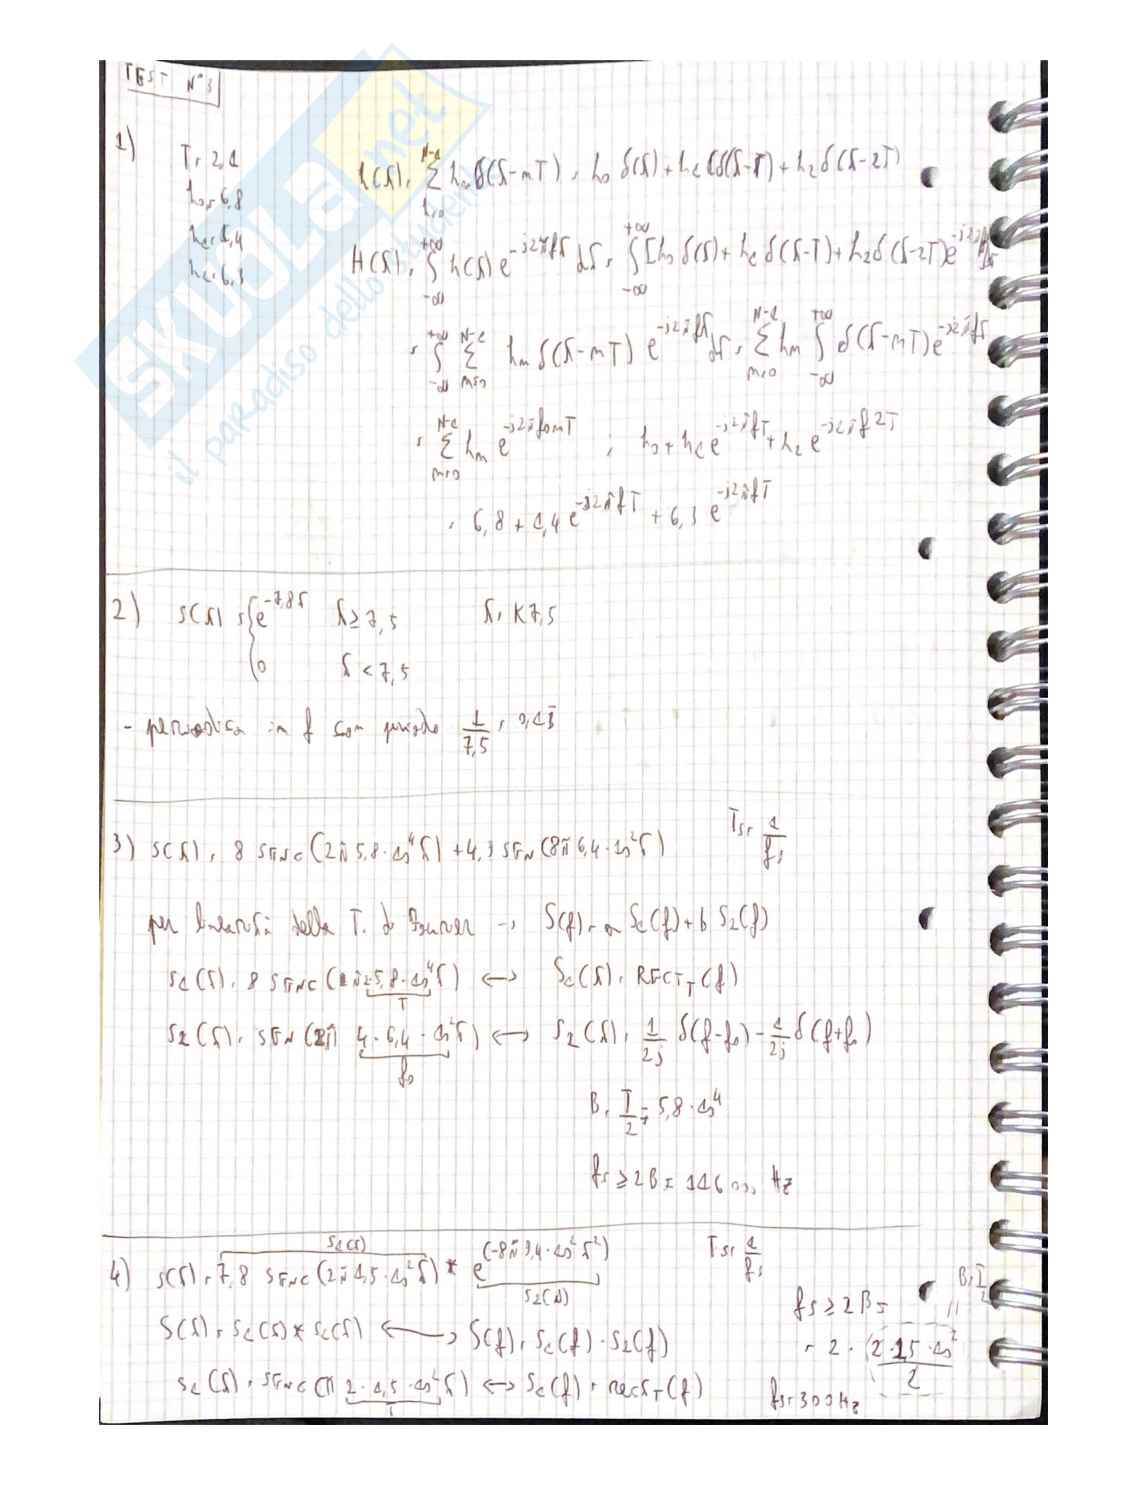 TEST N°3
1)
T = 2,1
h₀ = 6,8
h₁ = 1,4
h₂ = 6,3
h(t) = Σ_{n=0}^{N-1} hₙ δ(t-nT) = h₀ δ(t) + h₁ δ(t-T) + h₂ δ(t-2T)
H(f) = ∫_{-∞}^{+∞} h(t) e^{-j2πft} dt = ∫_{-∞}^{+∞} [h₀ δ(t) + h₁ δ(t-T) + h₂ δ(t-2T) e^{-j2πft} dt
= ∫_{-∞}^{+∞} Σ_{n=0}^{N-1} hₙ δ(t-nT) e^{-j2πft} dt = Σ_{n=0}^{N-1} hₙ ∫_{-∞}^{+∞} δ(t-nT) e^{-j2πft}
= Σ_{n=0}^{N-1} hₙ e^{-j2πf₀nT} ; h₀ + h₁ e^{-j2πfT} + h₂ e^{-j2πf2T}
= 6,8 + 1,4 e^{-j2πfT} + 6,3 e^{-j2πfT}
2) s(t) = { e^{-7,8t} t ≥ 7,5 t = K7,5
0 t < 7,5
- periodica in f con periodo 1/7,5 = 0,13
3) s(t) = 8 SINC(2π5,8·10⁴t) + 4,3 SEN(8π6,4·10²t) Ts = 1/fs
per linearità della T. di Fourier → S(f) = a S₁(f) + b S₂(f)
s₁(t) = 8 SINC(π2·5,8·10⁴t) ↔ S₁(t) = RECT_T(f)
T
s₂(t) = SEN(2π 4·6,4·10²t) ↔ S₂(t) = 1/2j δ(f-f₀) - 1/2j δ(f+f₀)
f₀
B = T/2 = 5,8·10⁴
fs ≥ 2B = 116000 Hz
s₁(t)
4) s(t) = 7,8 SINC(2π1,5·10²t) * e^{(-8π9,4·10²t²)} Ts = 1/fs
s₂(t)
S(t) = s₁(t) * s₂(t) ↔ S(f) = S₁(f) · S₂(f)
s₁(t) = SINC(π 2·1,5·10²t) ↔ S₁(f) = rect_T(f)
T
B = T/2
fs ≥ 2B =
= 2 · (2·1,5·10²)/2
fs = 300Hz
SKUOLA.net
il paradiso dello studente